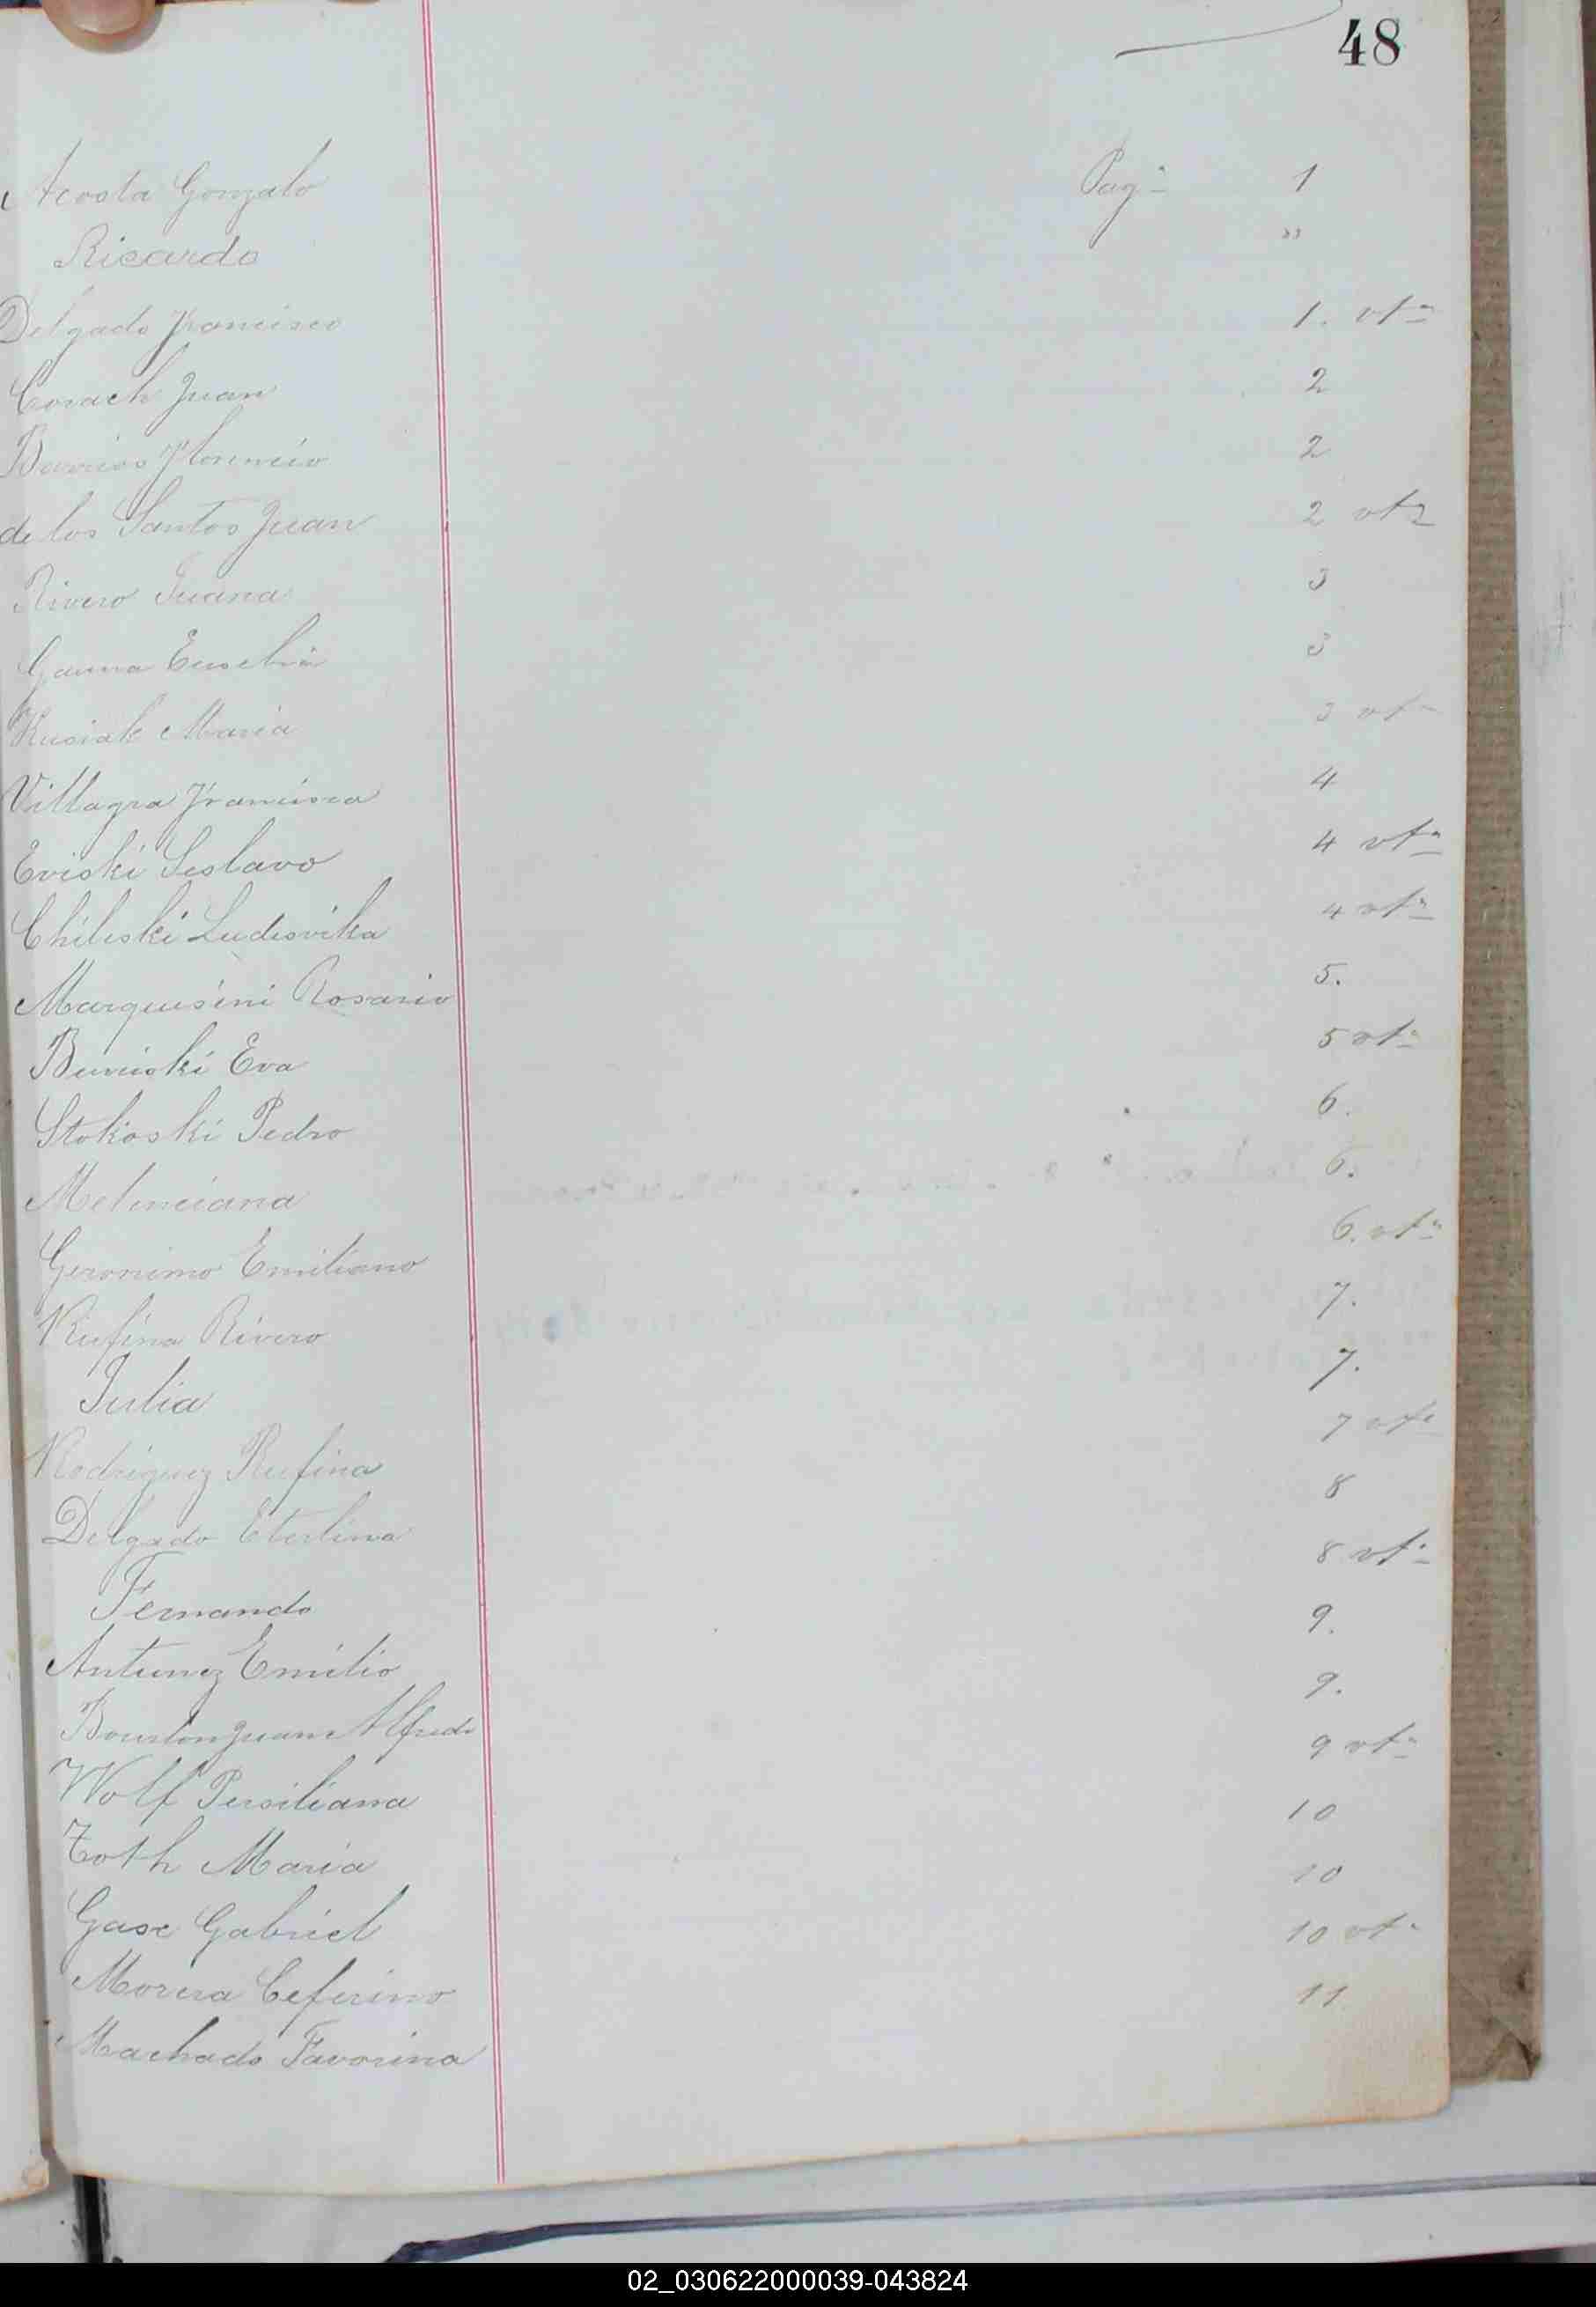 48
Acosta Gonzalo Pag.a 1
Ricardo "
Delgado Francisco 1. vta
Corach Juan 2
Barrios Florencio 2
de los Santos Juan 2 vta
Rivero Juana 3
Gauna Eusebia 3
Kusiak Maria 3 vta
Villagra Francisca 4
Eviski Seslavo 4 vta
Chileski Ludisvika 4 vta
Marquesini Rosario 5.
Buviski Eva 5 vta
Stokoski Pedro 6.
Melenciana 6.
Geronimo Emiliano 6. vta
Rufina Rivero 7.
Julia 7.
Rodriguez Rufina 7 vta
Delgado Etelvina 8
Fernando 8 vta
Antunez Emilio 9.
Bourlon Juan Alfredo 9.
Wolf Persiliana 9 vta
Toth Maria 10
Gase Gabriel 10
Morera Ceferino 10 vta
Machado Favorina 11
02_030622000039-043824